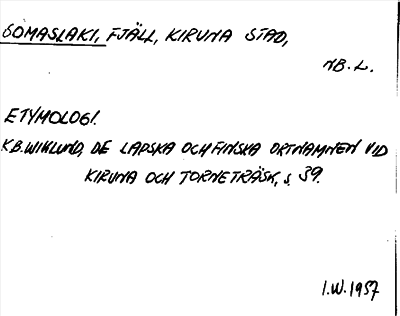 GOMASLAKI, FJÄLL, KIRUNA STAD,
NB. L.
ETYMOLOGI.
K.B. WIKLUND, DE LAPSKA OCH FINSKA ORTNAMNEN VID
KIRUNA OCH TORNETRÄSK, s. 39.
I.W. 1957